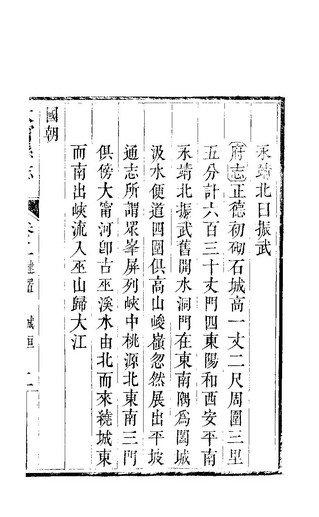 永靖北曰振武
府志正德初砌石城高一丈二尺周圍三里
五分計六百三十丈門四東陽和西安平南
永靖北振武舊開水洞門在東南隅為闔城
汲水便道四圍俱高山峻嶺忽然展出平坡
通志所謂眾峯屏列峽中桃源北東南三門
俱傍大甯河卽古巫溪水由北而來繞城東
而南出峽流入巫山歸大江
國朝
建置
城垣